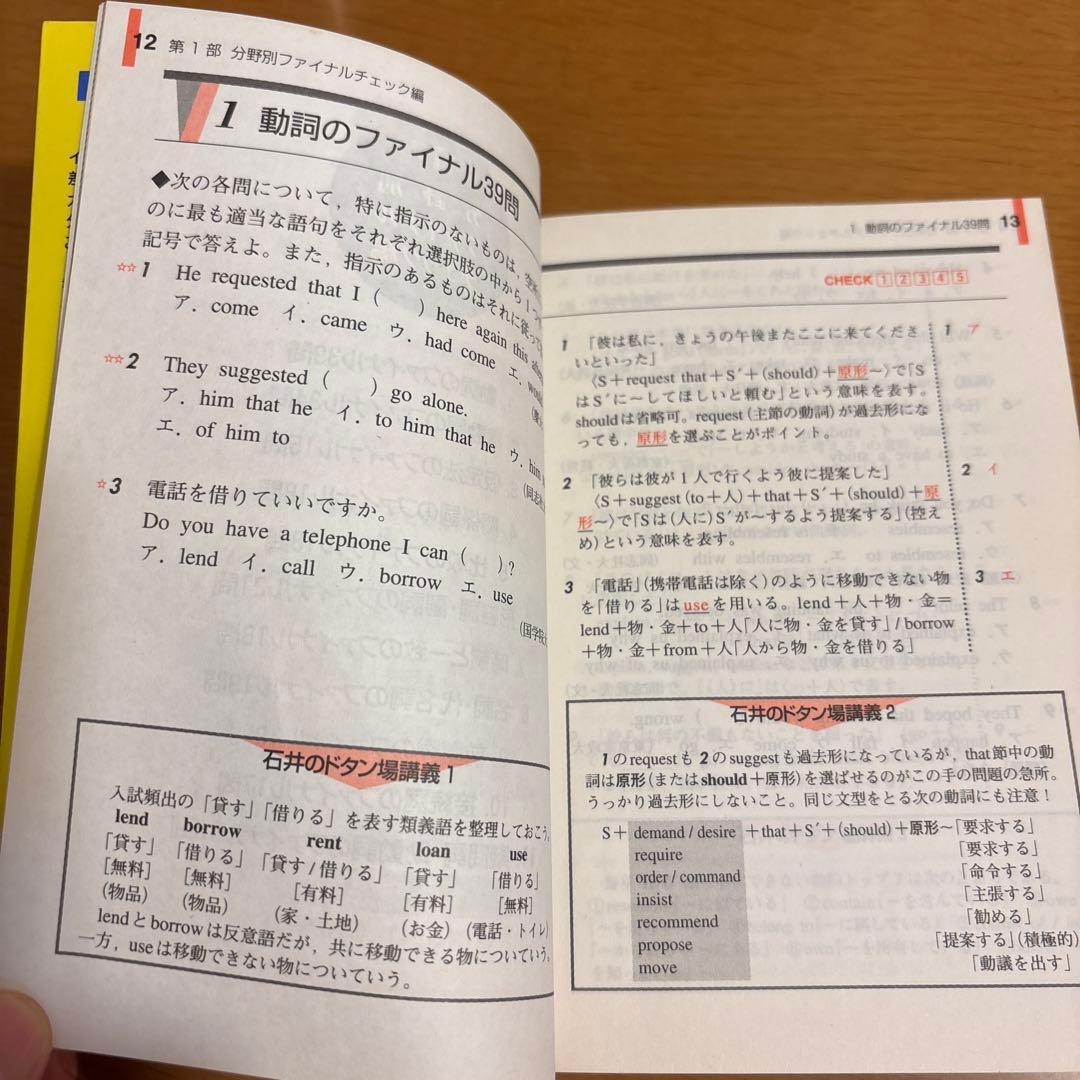 12 第1部 分野別ファイナルチェック編
1 動詞のファイナル39問
◆次の各問について，特に指示のないものは，空所
のに最も適当な語句をそれぞれ選択肢の中から1つ
記号で答えよ。また，指示のあるものはそれに従って
☆☆1 He requested that I (　) here again this
ア．come イ．came ウ．had come エ．
☆☆2 They suggested (　) go alone.
ア．him that he イ．to him that he ウ．
エ．of him to
☆3 電話を借りていいですか。
Do you have a telephone I can (　)?
ア．lend イ．call ウ．borrow エ．use
石井のドタン場講義1
入試頻出の「貸す」「借りる」を表す類義語を整理しておこう。
lend borrow rent loan use
「貸す」 「借りる」 「貸す/借りる」 「貸す」 「借りる」
［無料］ ［無料］ ［有料］ ［有料］ ［無料］
(物品) (物品) (家・土地) (お金) (電話・トイレ)
lendとborrowは反意語だが，共に移動できる物についていう。
一方，useは移動できない物についていう。
1 動詞のファイナル39問 13
CHECK 1 2 3 4 5
1 「彼は私に，きょうの午後またここに来てくださ
いといった」
〈S＋request that＋S′＋(should)＋原形～〉で「S
はS′に～してほしいと頼む」という意味を表す。
shouldは省略可。request(主節の動詞)が過去形にな
っても，原形を選ぶことがポイント。
1 ア
2 「彼らは彼が1人で行くよう彼に提案した」
〈S＋suggest (to＋人)＋that＋S′＋(should)＋原
形～〉で「Sは(人に)S′が～するよう提案する」(控え
め)という意味を表す。
2 イ
3 「電話」(携帯電話は除く)のように移動できない物
を「借りる」はuseを用いる。lend＋人＋物・金＝
lend＋物・金＋to＋人「人に物・金を貸す」/ borrow
＋物・金＋from＋人「人から物・金を借りる」
3 エ
石井のドタン場講義2
1のrequestも2のsuggestも過去形になっているが，that節中の動
詞は原形(またはshould＋原形)を選ばせるのがこの手の問題の急所。
うっかり過去形にしないこと。同じ文型をとる次の動詞にも注意！
S＋ demand / desire ＋that＋S′＋(should)＋原形～「要求する」
require 「要求する」
order / command 「命令する」
insist 「主張する」
recommend 「勧める」
propose 「提案する」(積極的)
move 「動議を出す」